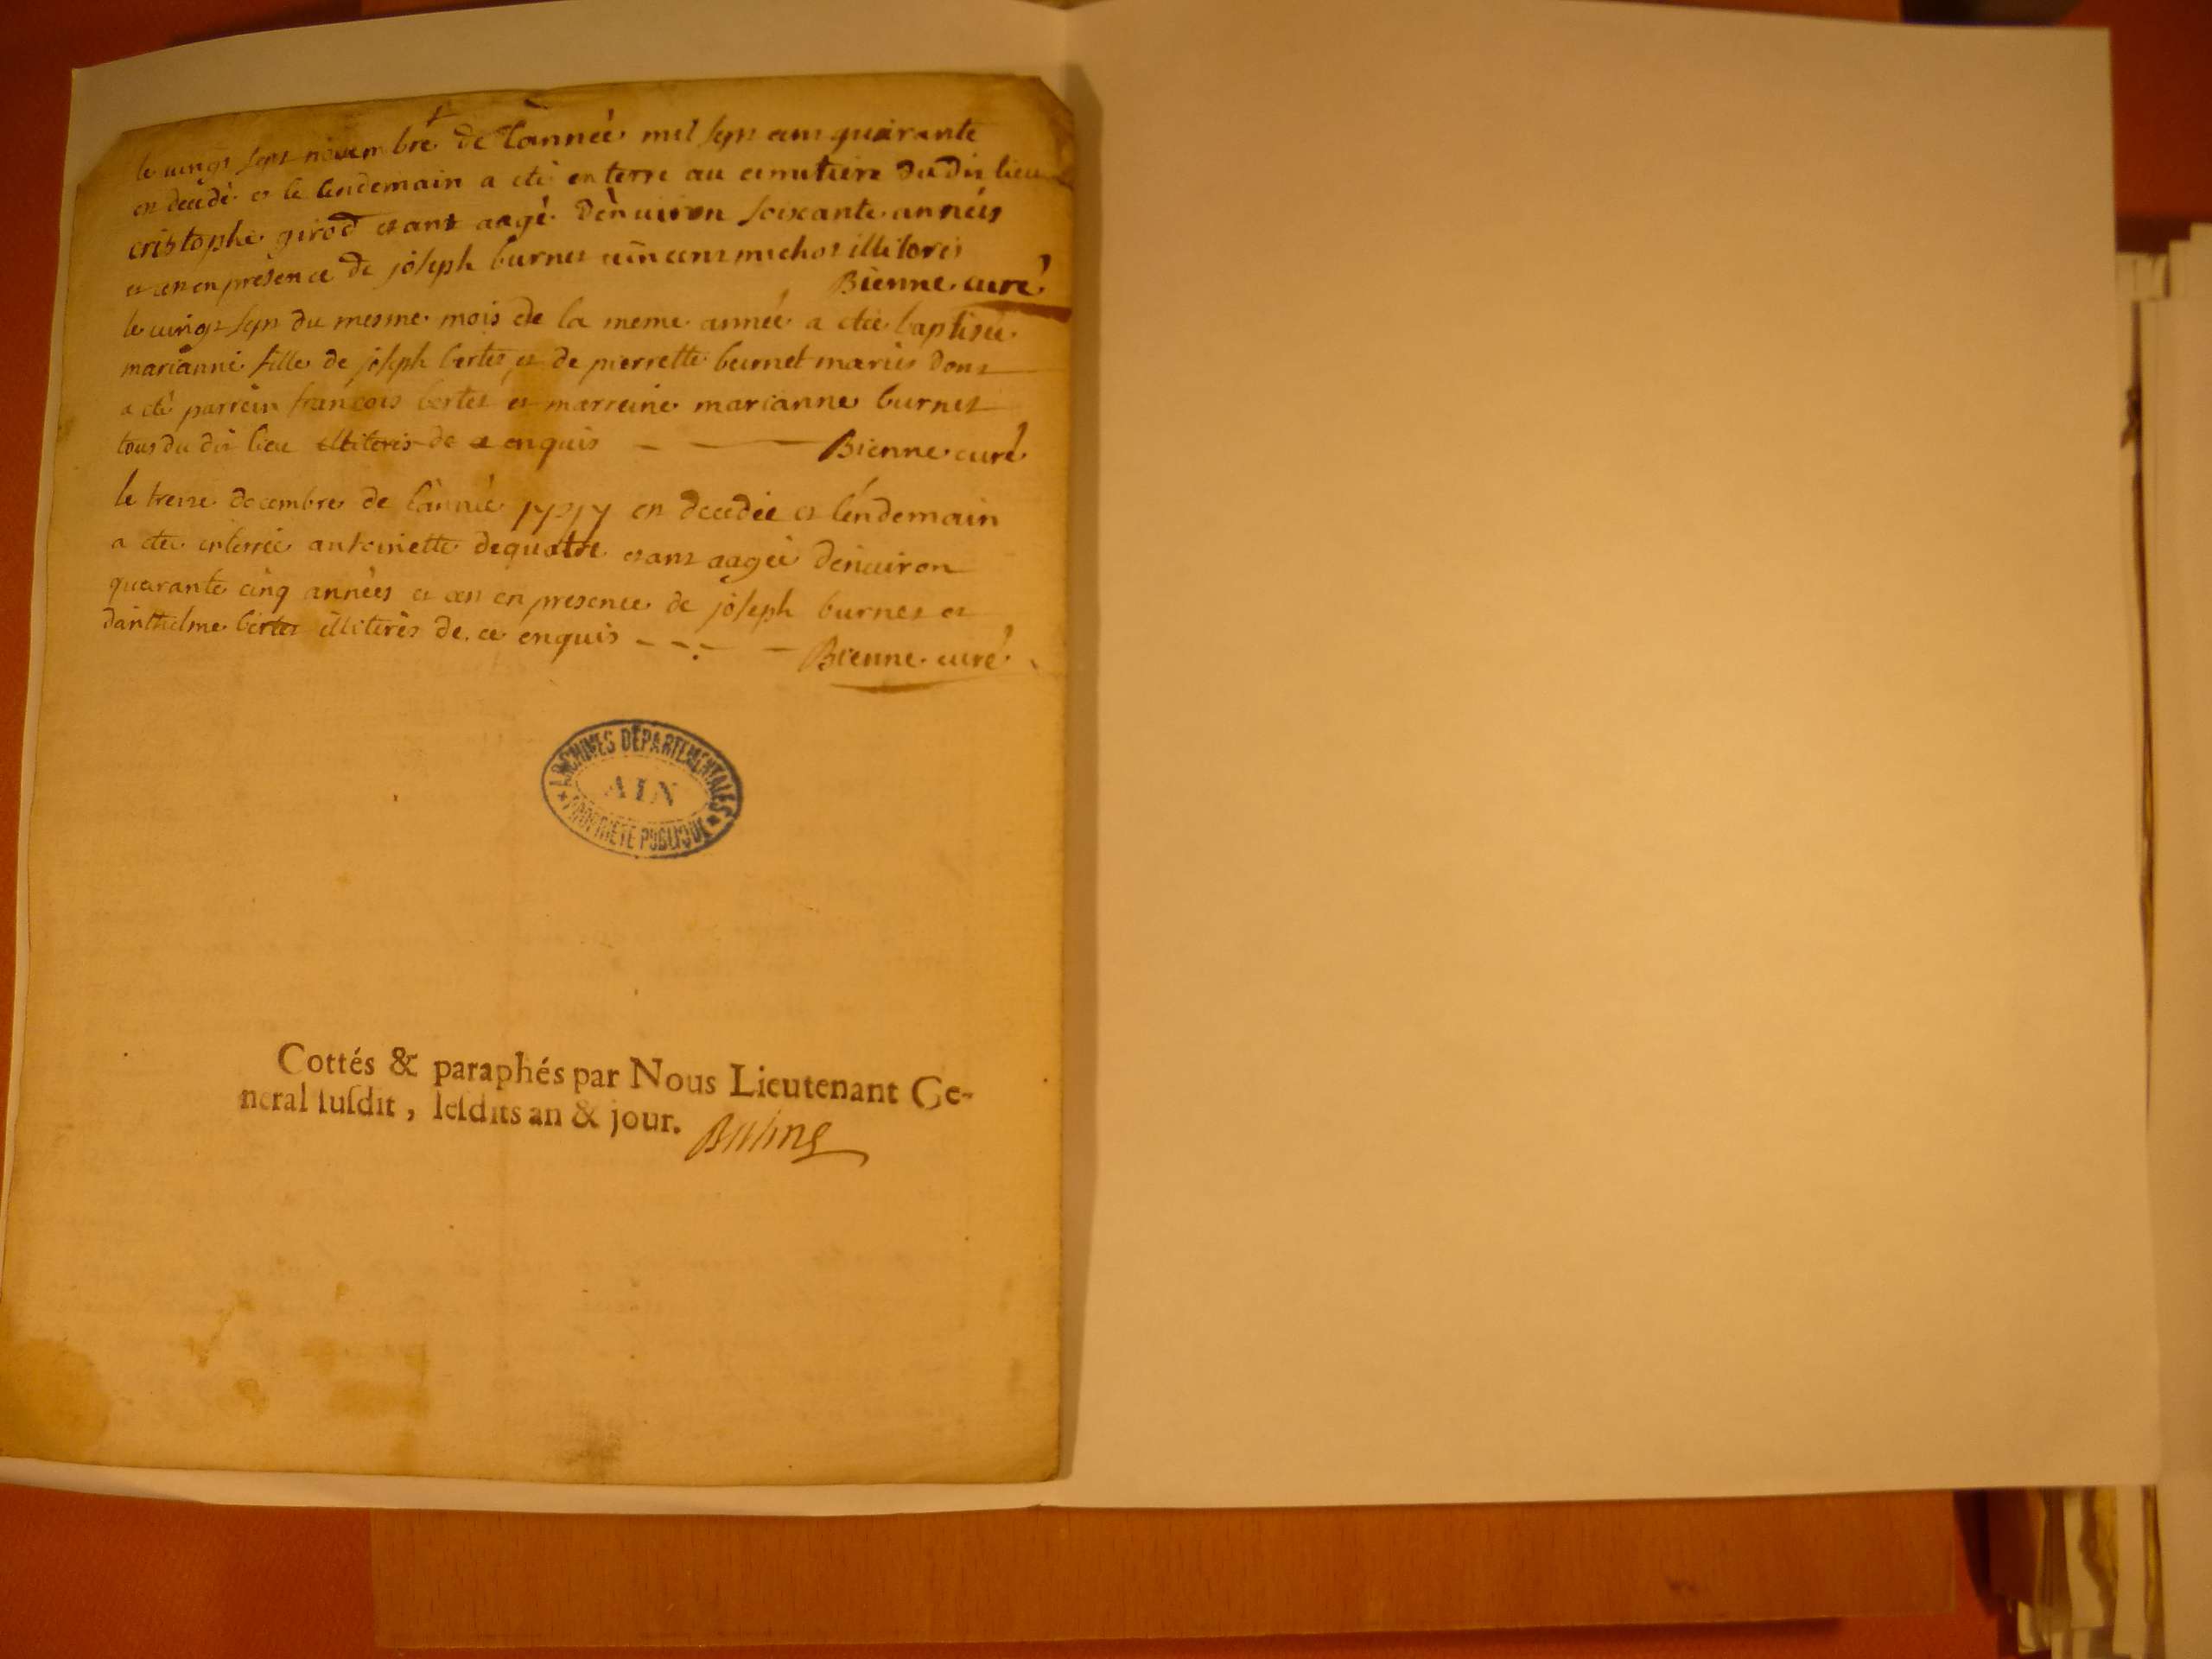 le vingt sept novembre de l'année mil sept cens quarante
est decedé et le lendemain a eté enterre au cimetiere du dit lieu
cristophe girod etant aagé d'environ soixante années
et ce en presence de joseph burnet vincent michot illiterés
Bienne curé
le vingt sept du mesme mois de la meme année a eteé baptisée
marianne fille de joseph bertet et de pierrette burnet mariés dont
a eté parrein françois bertet et marreine marianne burnet
tous du dit lieu illiterés de ce enquis - - — Bienne curé
le treize decembre de l'année est decedée et lendemain
a eteé enterrée antoinette dequatre etant aagée denviron
quarante cinq années et ce en presence de joseph burnet et
danthelme bertet illiterés de ce enquis - - - - Bienne curé
ARCHIVES DÉPARTEMENTALES
AIN
PROPRIÉTÉ PUBLIQUE
Cottés & paraphés par Nous Lieutenant Ge-
neral susdit, lesdits an & jour.